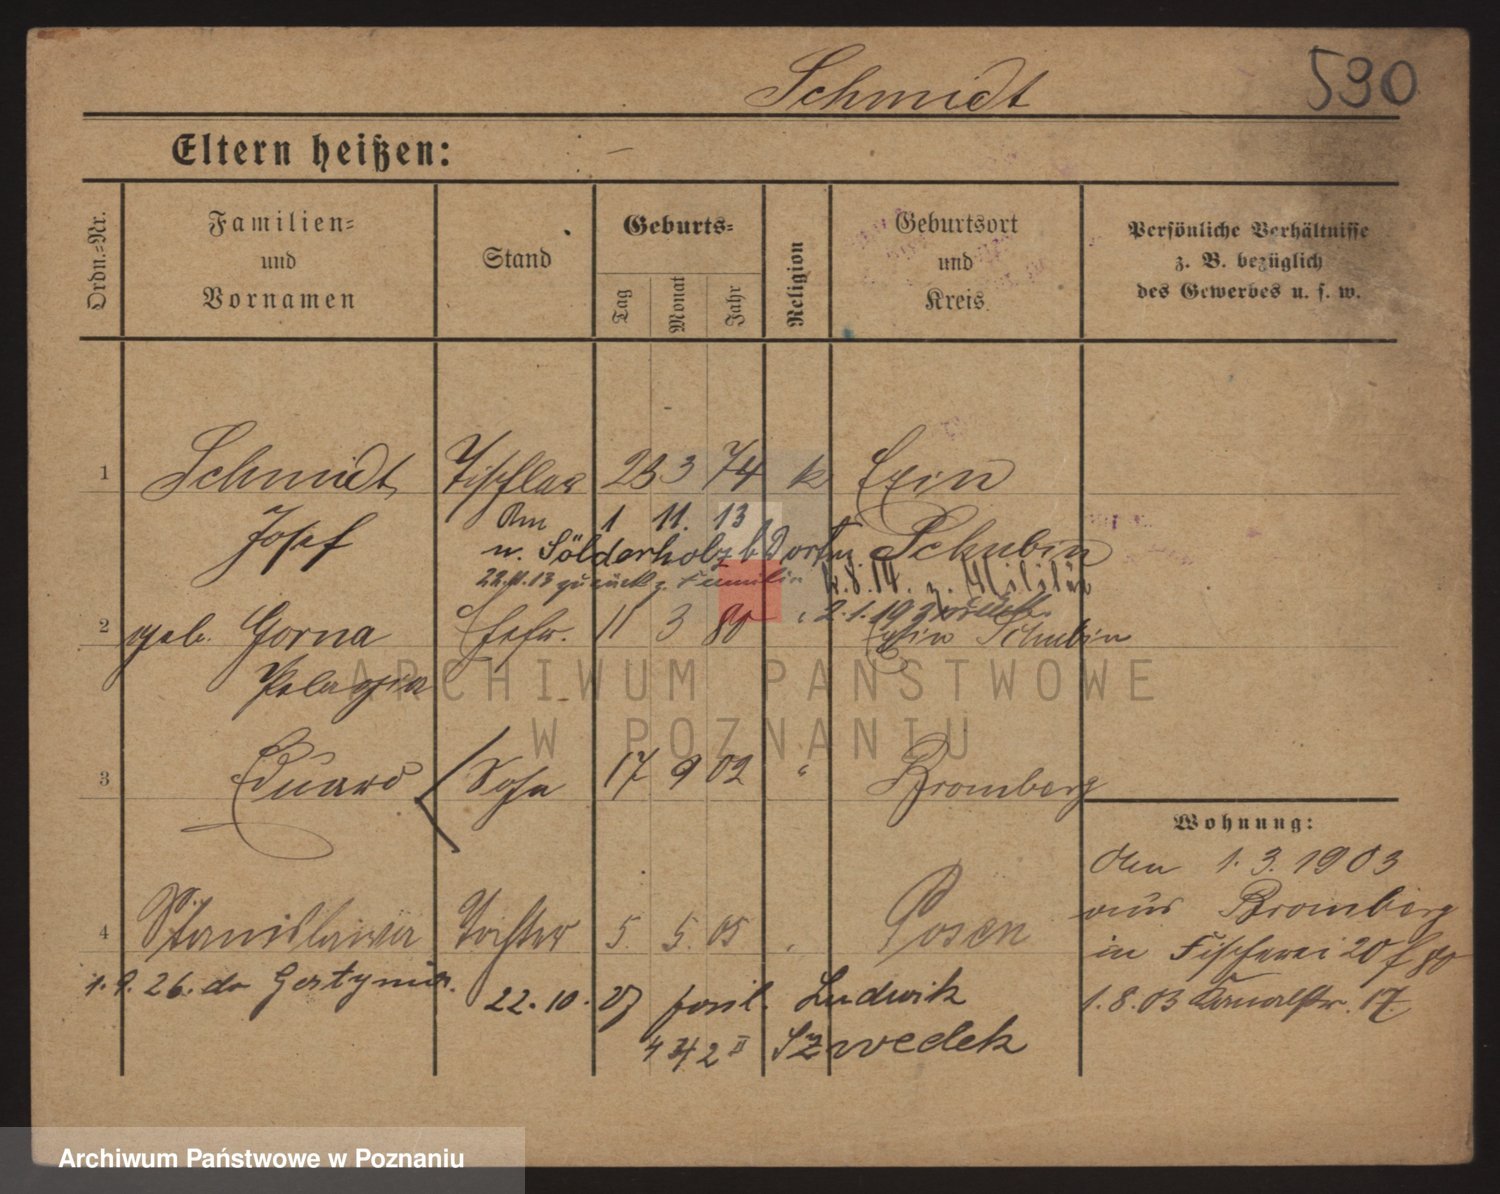 Schmidt 590
Eltern heißen: —
Ordn.=Nr.
Familien=
und
Vornamen
Stand
Geburts=
Tag
Monat
Jahr
Religion
Geburtsort
und
Kreis
Persönliche Verhältnisse
z. B. bezüglich
des Gewerbes u. s. w.
1 Schmidt Tischler 23 3 74 k Exin
Josef Schubin
Am 1 11. 13
n. Sölderholz b Dortm.
22.11.13 zurück z. Familie
8.14. z. Militär
2.1.19 zurück
2 geb. Gorna Ehefr. 11 3 80 " Exin Schubin
Pelagia
3 Eduard Sohn 17 9 02 " Bromberg
4 Stanislawa Tochter 5. 5. 05 " Posen
1.9.26. do Gertyni
22.10.27 Ludwik
Szwedek
Wohnung:
den 1.3.1903
aus Bromberg
in Fischerei 20
1.8.03 Kanalstr. 17.
ARCHIWUM PAŃSTWOWE
W POZNANIU
Archiwum Państwowe w Poznaniu